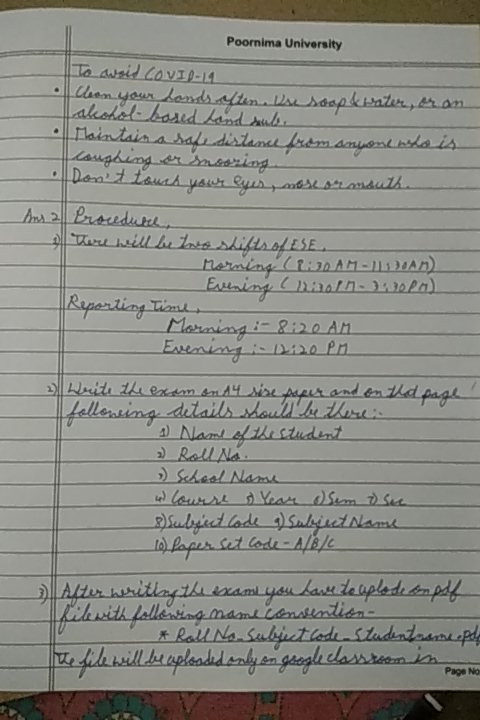 Poornima University
To avoid COVID-19
• Clean your hands often. Use soap & water, or an
alcohol-based hand rub.
• Maintain a safe distance from anyone who is
coughing or snooring.
• Don't touch your eyes, nose or mouth.
Ans 2 Procedure,
1) There will be two shifts of ESE.
Morning (8:30 AM - 11:30AM)
Evening (12:30PM - 3:30PM)
Reporting Time,
Morning :- 8:20 AM
Evening :- 12:20 PM
2) Write the exam on A4 size paper and on that page
following details should be there:-
1) Name of the student
2) Roll No.
3) School Name
4) Course 5) Year 6) Sem 7) Sec
8) Subject Code 9) Subject Name
10) Paper Set Code - A/B/C
3) After writing the exam you have to uplode on pdf
file with following name convention -
* Roll No_Subject Code_Studentname.pdf
The file will be uploaded only on google classroom in
Page No